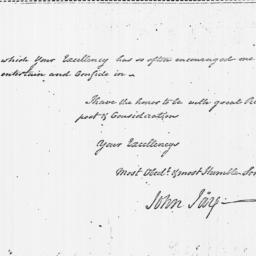 which Your Excellency has so often encouraged me
entertain and Confide in.
I have the honor to be with great Re
pect & Consideration
Your Excellencys
Most Obedt. & most Humble Ser
John Jay